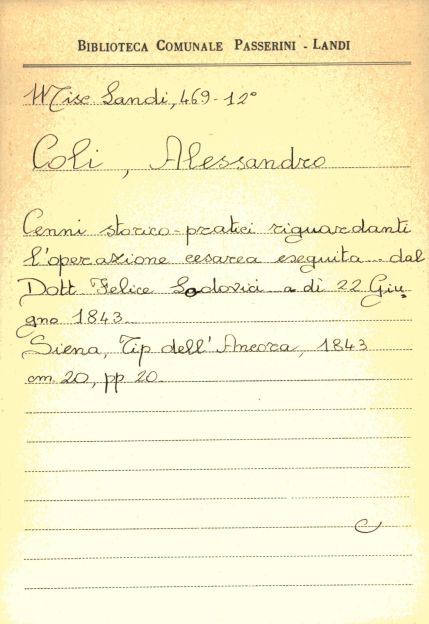 BIBLIOTECA COMUNALE PASSERINI - LANDI
Misc Landi, 469-12°
Coli, Alessandro
Cenni storico-pratici riguardanti
l'operazione cesarea eseguita dal
Dott Felice Lodovici a dì 22 Giu
gno 1843
Siena, Tip dell'Ancora, 1843
cm 20, pp 20
C